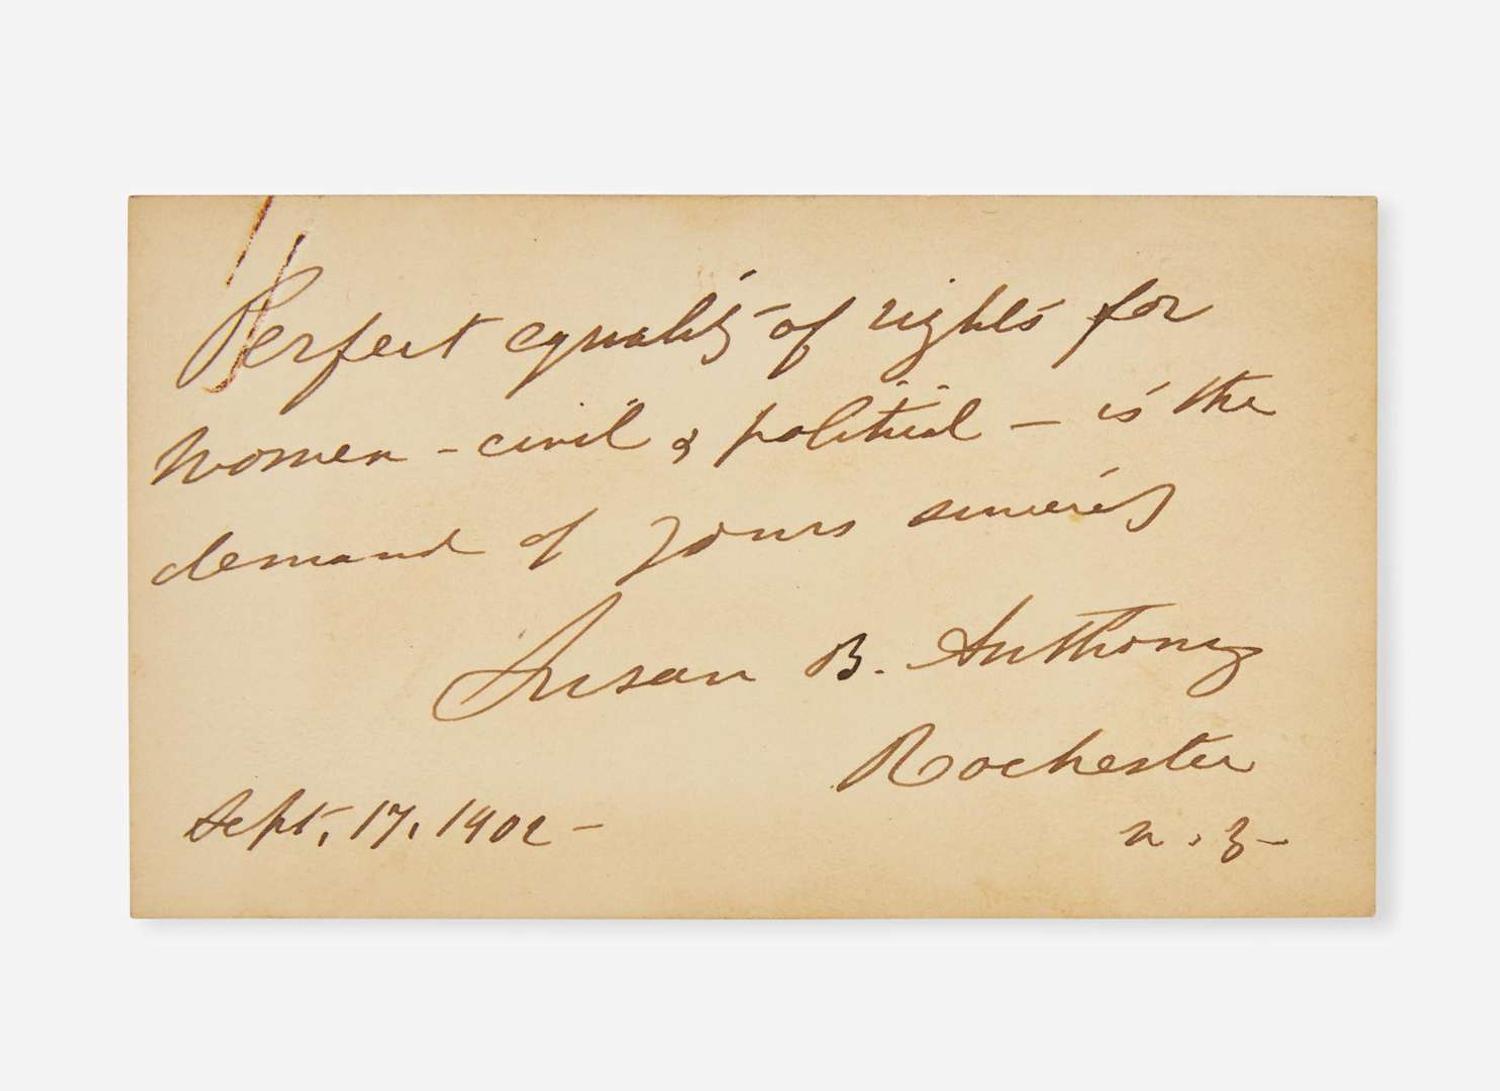 Perfect equality of rights for
women - civil & political - is the
demand of yours sincerely
Susan B. Anthony
Rochester
Sept. 17, 1902 -
N. Y -